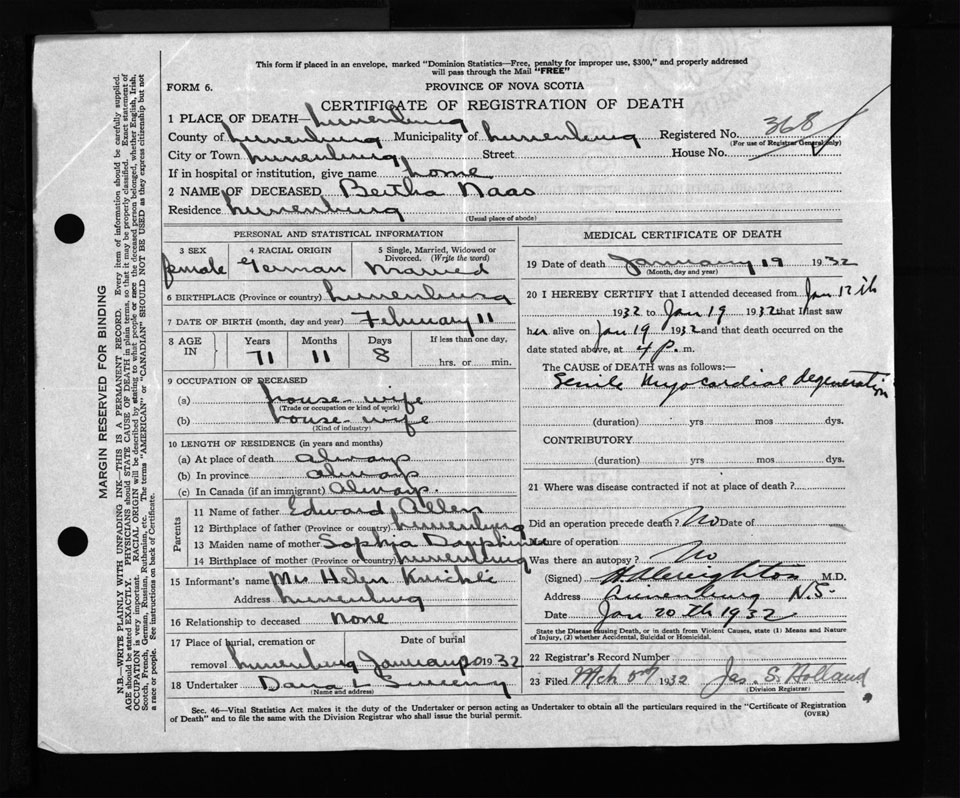 This form if placed in an envelope, marked "Dominion Statistics—Free, penalty for improper use, $300," and properly addressed
will pass through the Mail "FREE"
FORM 6.
PROVINCE OF NOVA SCOTIA
CERTIFICATE OF REGISTRATION OF DEATH
1 PLACE OF DEATH— Lunenburg
County of Lunenburg Municipality of Lunenburg Registered No. 368
(For use of Registrar General only)
City or Town Lunenburg Street House No.
If in hospital or institution, give name home
2 NAME OF DECEASED Bertha Naas
Residence Lunenburg
(Usual place of abode)
PERSONAL AND STATISTICAL INFORMATION
3 SEX 4 RACIAL ORIGIN 5 Single, Married, Widowed or
Divorced. (Write the word)
female German Married
6 BIRTHPLACE (Province or country) Lunenburg
7 DATE OF BIRTH (month, day and year) February 11
8 AGE IN Years Months Days If less than one day,
71 11 8 hrs. or min.
9 OCCUPATION OF DECEASED
(a) house-wife
(Trade or occupation or kind of work)
(b) house-wife
(Kind of industry)
10 LENGTH OF RESIDENCE (in years and months)
(a) At place of death always
(b) In province always
(c) In Canada (if an immigrant) Always.
Parents
11 Name of father Edward Allen
12 Birthplace of father (Province or country) Lunenburg
13 Maiden name of mother Sophia Dauphinee
14 Birthplace of mother (Province or country) Lunenburg
15 Informant's name Mrs Helen
Address Lunenburg
16 Relationship to deceased none
17 Place of burial, cremation or Date of burial
removal Lunenburg January 1932
18 Undertaker Sweeny
(Name and address)
MEDICAL CERTIFICATE OF DEATH
19 Date of death January 19 1932
(Month, day and year)
20 I HEREBY CERTIFY that I attended deceased from Jan 12th
1932 to Jan 19 1932 that I last saw
her alive on Jan 19 1932 and that death occurred on
date stated above, at 4 p. m.
The CAUSE of DEATH was as follows:—
Senile Myocardial degeneration
(duration) yrs mos dys.
CONTRIBUTORY
(duration) yrs mos dys.
21 Where was disease contracted if not at place of death?
Did an operation precede death? No Date of
Nature of operation
Was there an autopsy? No
(Signed) M.D.
Address Lunenburg N.S.
Date Jan 20th 1932
State the Disease Causing Death, or in death from Violent Causes, state (1) Means and Nature
of Injury, (2) whether Accidental, Suicidal or Homicidal.
22 Registrar's Record Number
23 Filed Mch 1932 Jas. S. Holland
(Division Registrar)
Sec. 46—Vital Statistics Act makes it the duty of the Undertaker or person acting as Undertaker to obtain all the particulars required in the "Certificate of Registration
of Death" and to file the same with the Division Registrar who shall issue the burial permit.
(OVER)
MARGIN RESERVED FOR BINDING
N.B.—WRITE PLAINLY WITH UNFADING INK—THIS IS A PERMANENT RECORD. Every item of information should be carefully supplied.
AGE should be stated EXACTLY. PHYSICIANS should STATE CAUSE OF DEATH in plain terms, so that it may be properly classified. Exact statement of
OCCUPATION is very important. RACIAL ORIGIN will be described by stating to what people or race the deceased person belonged, whether English, Irish,
Scotch, French, German, Russian, Ruthenian, etc. The terms "AMERICAN" or "CANADIAN" SHOULD NOT BE USED as they express citizenship but not
a race or people. See instructions on back of Certificate.